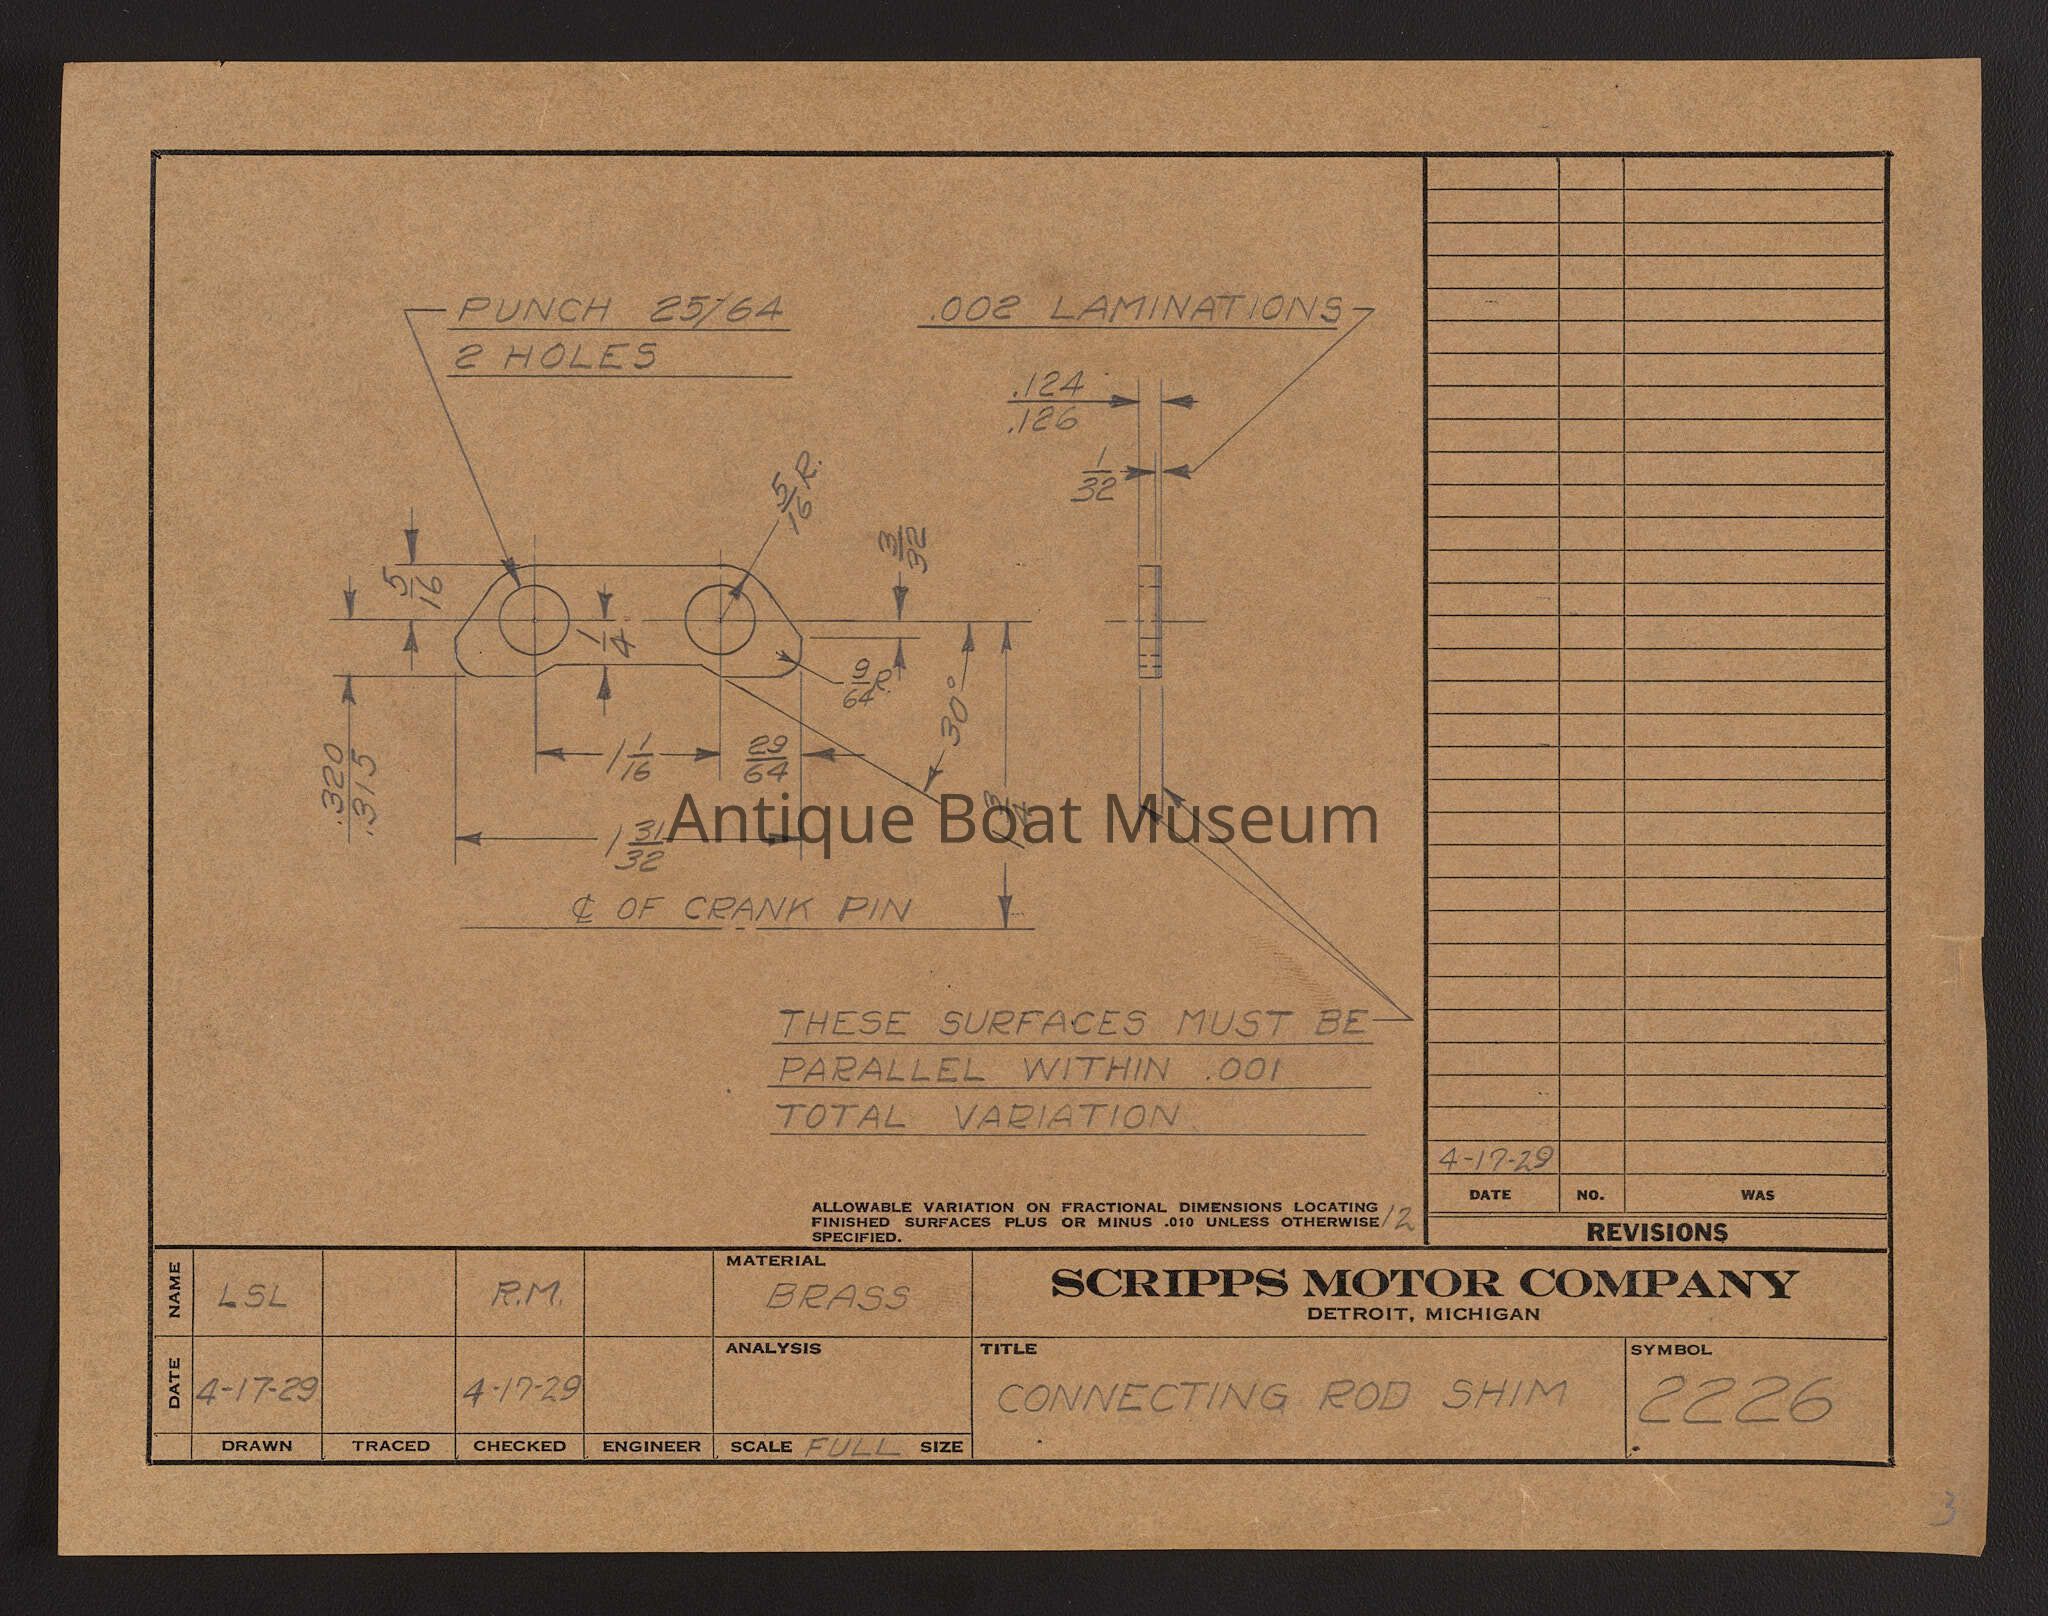 PUNCH 25/64
2 HOLES
.002 LAMINATIONS
.124
.126
1/32
5/16 R.
3/32
5/16
1/4
9/64 R.
30°
.320
.315
1 1/16
29/64
1 31/32
1 3/4
Antique Boat Museum
℄ OF CRANK PIN
THESE SURFACES MUST BE
PARALLEL WITHIN .001
TOTAL VARIATION
4-17-29
DATE NO. WAS
REVISIONS
ALLOWABLE VARIATION ON FRACTIONAL DIMENSIONS LOCATING
FINISHED SURFACES PLUS OR MINUS .010 UNLESS OTHERWISE 12
SPECIFIED.
NAME LSL R.M.
MATERIAL
BRASS
SCRIPPS MOTOR COMPANY
DETROIT, MICHIGAN
DATE 4-17-29 4-17-29
ANALYSIS
TITLE
CONNECTING ROD SHIM
SYMBOL
2226
DRAWN TRACED CHECKED ENGINEER SCALE FULL SIZE
3